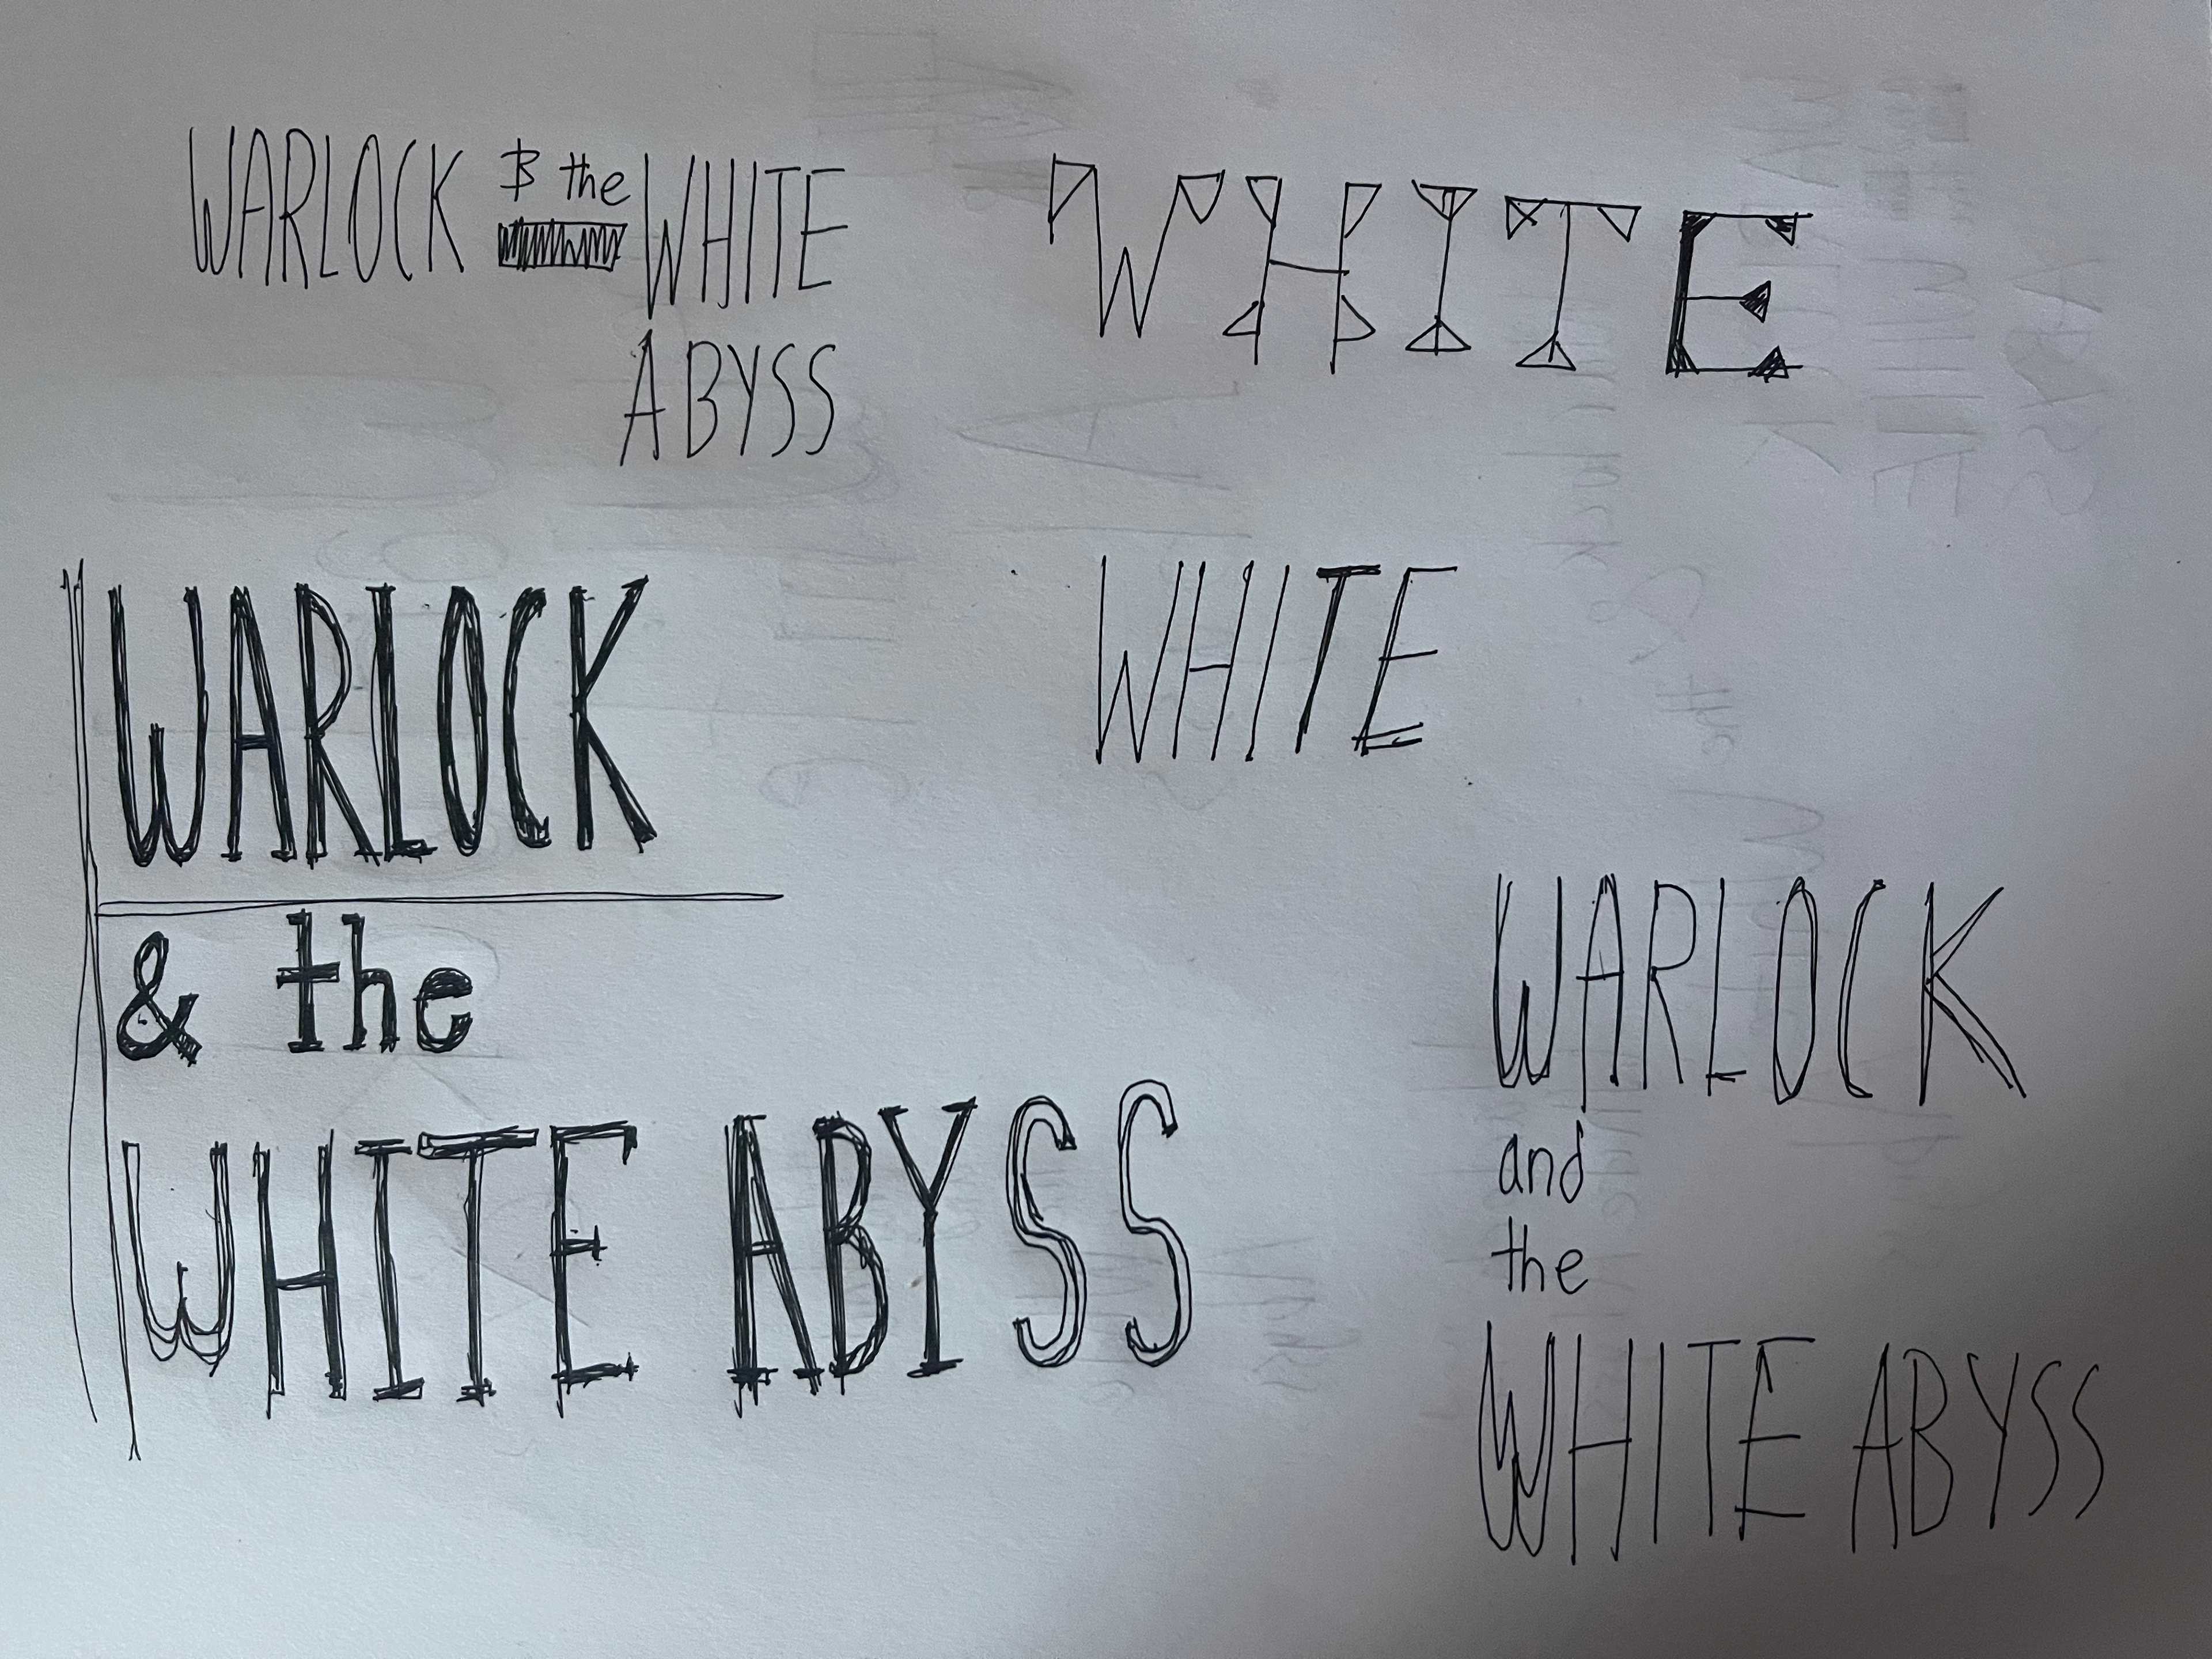 WARLOCK & the WHITE
ABYSS
WHITE
WARLOCK
& the
WHITE ABYSS
WHITE
WARLOCK
and
the
WHITE ABYSS